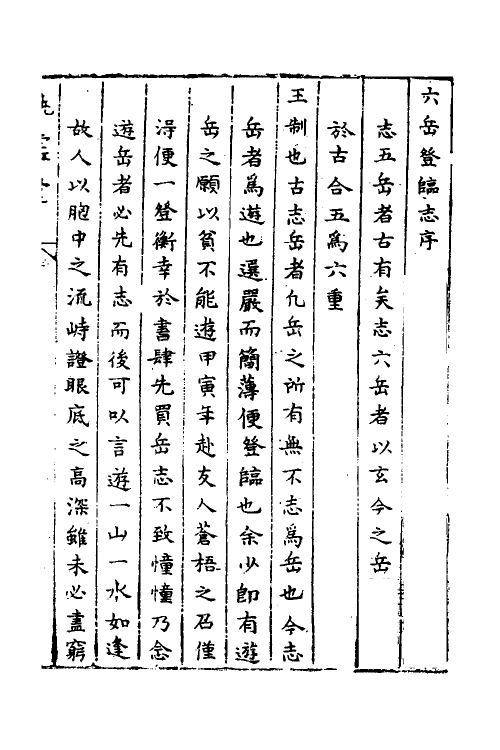 六岳登臨志序
志五岳者古有矣志六岳者以玄今之岳
於古合五爲六重
王制也古志岳者凢岳之所有無不志爲岳也今志
岳者爲遊也選嚴而簡薄便登臨也余少卽有遊
岳之願以貧不能遊甲寅年赴友人蒼梧之召僅
淂便一登衡幸於書肆先買岳志不致憧憧乃念
遊岳者必先有志而後可以言遊一山一水如逢
故人以胞中之流峙證眼底之高深雖未必盡窮